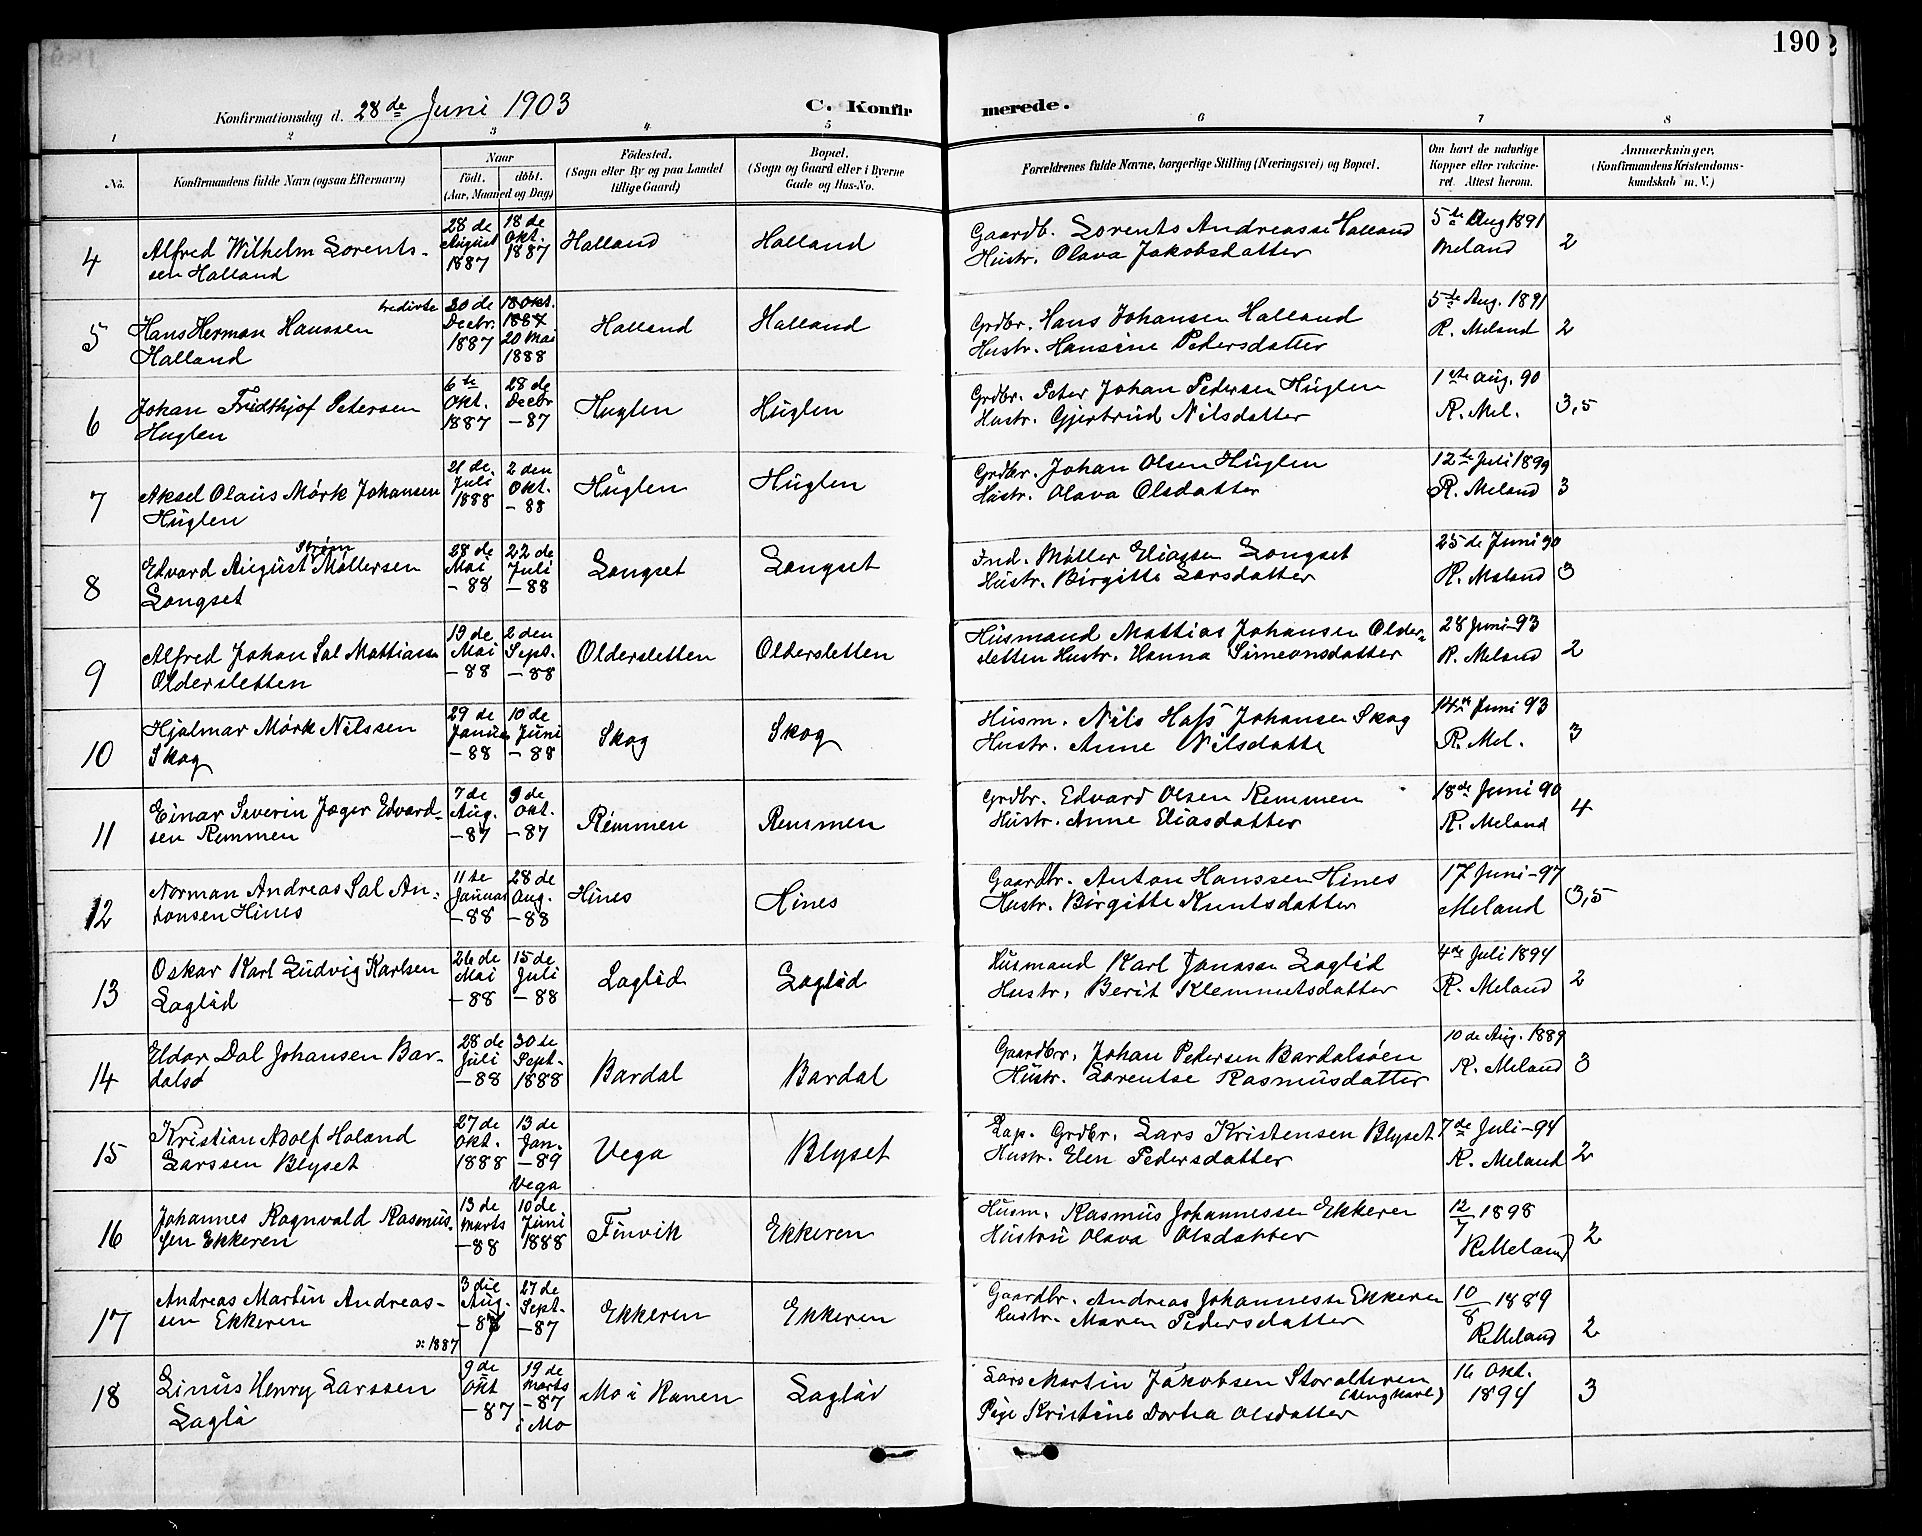 190
Konfirmationsdag d. 28de Juni 1903
C. Konfirmerede.
1 2 3 4 5 6 7 8
No.
Konfirmandens fulde Navn (ogsaa Efternavn)
Naar
født. døbt.
(Aar, Maaned og Dag)
Födested.
(Sogn eller By og paa Landet
tillige Gaard)
Bopæl.
(Sogn og Gaard eller i Byerne
Gade og Hus-No.
Forældrenes fulde Navne, borgerlige Stilling (Næringsvei) og Bopæl.
Om havt de naturlige
Kopper eller vakcine-
ret. Attest herom.
Anmærkninger.
(Konfirmandens Kristendoms-
kundskab m. V.)
4
Alfred Wilhelm Lorents-
sen Halland
28 de
August
1887
18 de
Okt.
1887
Halland
Halland
Gaardb. Lorents Andreassen Halland
Hustr. Olava Jakobsdatter
5te Aug 1891
Meland
2
5
Hans Herman Hanssen
Halland
20 de
Decbr.
1887
18 Okt.
1887
20 Mai
1888
Halland
Halland
Grdbr. Hans Johansen Halland
Hustr. Hansine Pedersdatter
5te Aug. 1891
R. Meland
2
6
Johan Fridthjof Petersen
Huglen
6te
Okt.
1887
28 de
Decbr
-87
Huglen
Huglen
Grdbr. Peter Johan Pedersen Huglen
Hustr. Gjertrud Nilsdatter
1ste Aug. 90
R. Mel.
3,5
7
Aksel Olaus Mørk Johansen
Huglen
21 de
Juli
1888
2 den
Okt.
- 88
Huglen
Huglen
Grdbr. Johan Olsen Huglen
Hustr. Olava Olsdatter
12te Juli 1899
R. Meland
3
8
Strøm
Edvard August Møllersen
Longset
28 de
Mai
- 88
22 de
Juli
- 88
Longset
Longset
Ind. Møller Eliassen Longset
Hustr. Birgitte Larsdatter
25 de Juni 90
R. Meland
3
9
Alfred Johan Sal Mattiassen
Oldersletten
19 de
Mai
- 88
2 den
Sept.
- 88
Oldersletten
Oldersletten
Husmand Mattias Johansen Older-
sletten Hustr. Hanna Simeonsdatter
28 Juni-93
R. Meland
2
10
Hjalmar Mørk Nilssen
Skog
29 de
Januar
- 88
10 de
Juni
- 88
Skog
Skog
Husm. Nils Hass Johansen Skog
Hustr. Anne Nilsdatte
14de Juni 93
R. Mel.
3
11
Einar Severin Jæger Edvard-
sen Remmen
7 de
Aug.
-87
9 de
Okt.
-87
Remmen
Remmen
Grdbr. Edvard Olsen Remmen
Hustr. Anne Eliasdatter
18de Juni 90
R. Meland
4
12
Norman Andreas Sal An-
tonsen Hines
11 te
Januar
-88
28 de
Aug.
-88
Hines
Hines
Gaardbr. Anton Hanssen Hines
Hustr. Birgitte Kuntsdatter
17 Juni-97
Meland
3,5
13
Oskar Karl Ludvig Karlsen
Laglid
26 de
Mai
-88
15 de
Juli
-88
Laglid
Laglid
Husmand Karl Jonassen Laglid
Hustr. Berit Klemmetsdatter
4de Juli 1894
R. Meland
2
14
Eldor Dal Johansen Bar-
dalsø
28 de
Juli
-88
30 te
Sept-
1888
Bardal
Bardal
Gaardbr. Johan Pedersen Bardalsøen
Hustr. Lorentse Rasmusdatter
10 de Aug. 1889
R. Meland
3
15
Kristian Adolf Holand
Larssen Blyset
27 de
Okt.
1888
13 de
Jan.
-89
Vega
Vega
Blyset
Lap. Grdbr. Lars Kristensen Blyset
Hustr. Elen Pedersdatter
7de Juli-94
R. Meland
2
16
Johannes Ragnvald Rasmus-
sen Ekkeren
13 de
Marts
-88
10 de
Juni
1888
Finvik
Ekkeren
Husm. Rasmus Johannessen Ekkeren
Hustru Olava Olsdatter
12/7 1898
R. Meland
2
17
Andreas Martin Andreas-
sen Ekkeren
ɔ: 1887
3 die
Aug.
-87
27 de
Sept-
-87
Ekkeren
Ekkeren
Gaardbr. Andreas Johannessen Ekkeren
Hustr. Maren Pedersdatter
10/8 1889
R. Meland
2
18
Linus Henry Larssen
Lagli
9 de
Okt
-87
19 de
Marts
-87
i Mo
Mo i Ranen
Laglid
Lars Martin Jakobsen Storalteren
(Ungkarl)
Pige Kristine Dortea Olsdatter
16 Okt.
1894
3